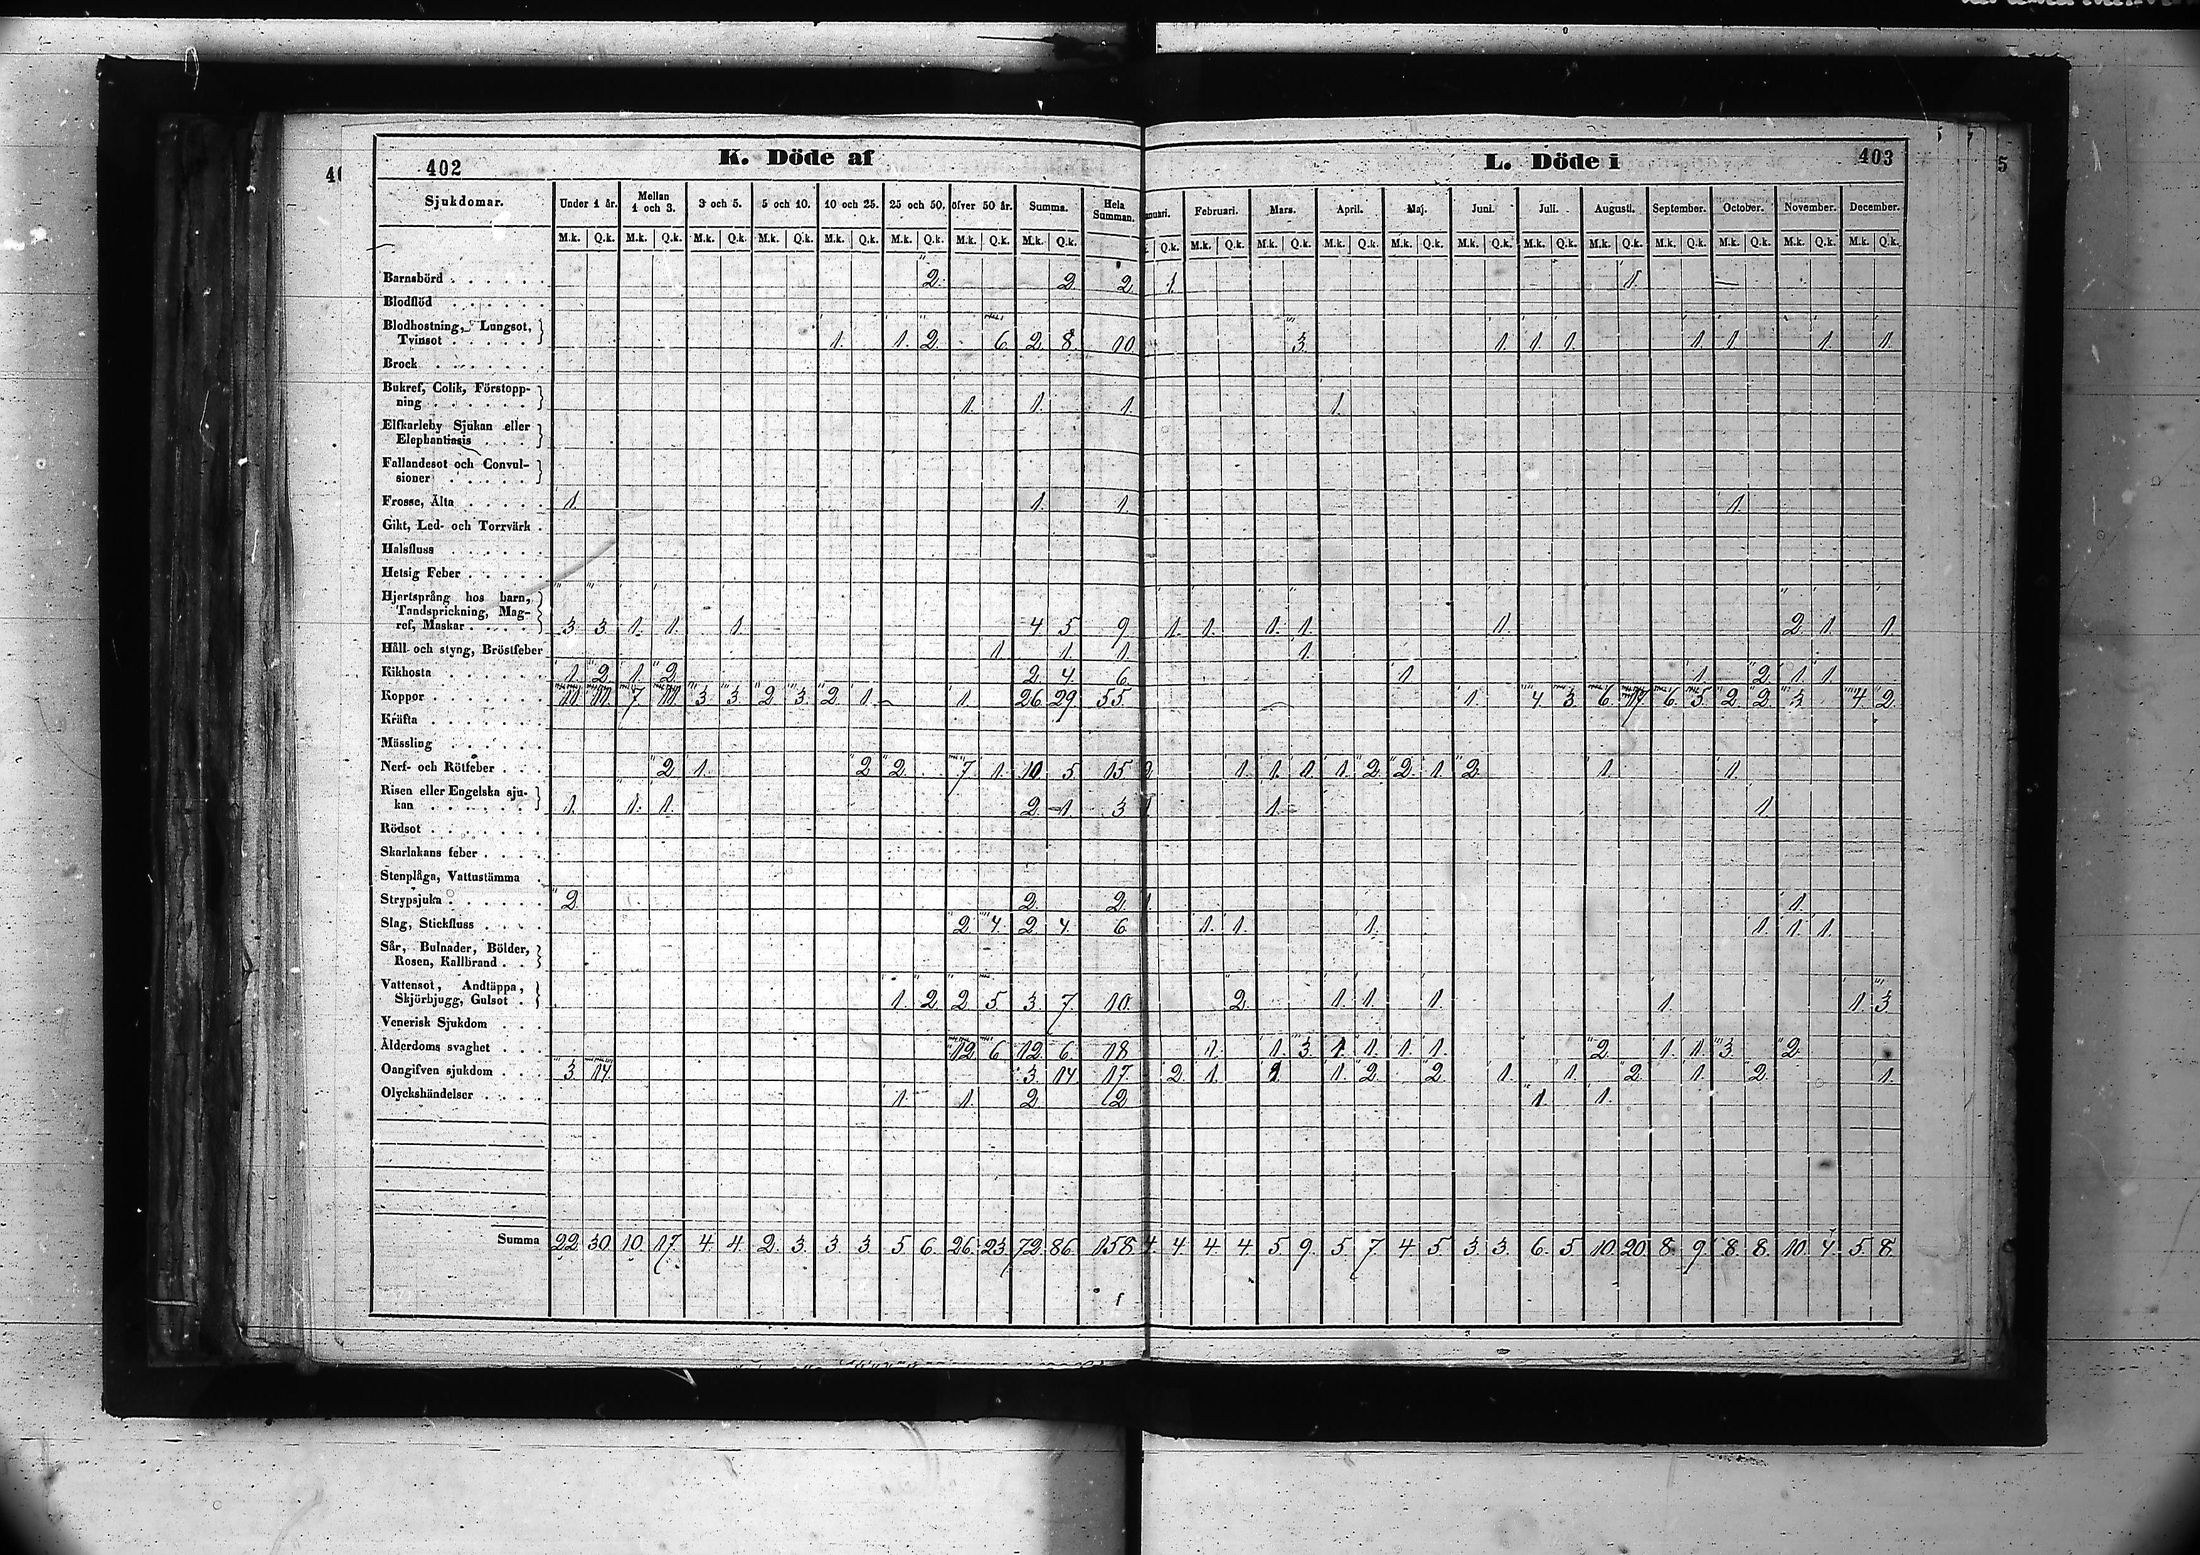 402 K. Döde af L. Döde i 403
Sjukdomar. Under 1 år. Mellan 1 och 3. 3 och 5. 5 och 10. 10 och 25. 25 och 50. öfver 50 år. Summa. Hela Summan. Februari. Mars. April. Maj. Juni. Juli. Augusti. September. October. November. December.
M.k. Q.k. M.k. Q.k. M.k. Q.k. M.k. Q.k. M.k. Q.k. M.k. Q.k. M.k. Q.k. M.k. Q.k. Q.k. M.k. Q.k. M.k. Q.k. M.k. Q.k. M.k. Q.k. M.k. Q.k. M.k. Q.k. M.k. Q.k. M.k. Q.k. M.k. Q.k. M.k. Q.k. M.k. Q.k.
Barnsbörd 2. 2. 2. 1. 1.
Blodflöd
Blodhostning, Lungsot,
Tvinsot 1. 1. 2. 6. 2. 8. 10. 3. 1. 1. 1. 1. 1. 1. 1.
Brock
Bukref, Colik, Förstopp-
ning 1. 1. 1. 1.
Elfkarleby Sjukan eller
Elephantiasis
Fallandesot och Convul-
sioner
Frosse, Älta 1. 1. 1. 1.
Gikt, Led- och Torrvärk
Halsfluss
Hetsig Feber
Hjertsprång hos barn,
Tandsprickning, Mag-
ref, Maskar 3. 3. 1. 1. 1. 4. 5. 9. 1. 1. 1. 1. 1. 2. 1. 1.
Håll- och styng, Bröstfeber 1. 1. 1. 1.
Kikhosta 1. 2. 1. 2. 2. 4. 6. 1. 1. 2. 1. 1.
Koppor 11. 11. 7. 11. 3. 3. 2. 3. 2. 1. 1. 26. 29. 55. 1. 4. 3. 6. 17. 6. 5. 2. 2. 3. 4. 2.
Kräfta
Mässling
Nerf- och Rötfeber 2. 1. 2. 2. 7. 1. 10. 5. 15. 2. 1. 1. 1. 1. 2. 2. 1. 2. 1. 1.
Risen eller Engelska sju-
kan 1. 1. 1. 2. 1. 3. 1. 1. 1.
Rödsot
Skarlakans feber
Stenplåga, Vattustämma
Strypsjuka 2. 2. 2. 1. 1.
Slag, Stickfluss 2. 4. 2. 4. 6. 1. 1. 1. 1. 1. 1.
Sår, Bulnader, Bölder,
Rosen, Kallbrand
Vattensot, Andtäppa,
Skjörbjugg, Gulsot 1. 2. 2. 5. 3. 7. 10. 2. 1. 1. 1. 1. 1. 3.
Venerisk Sjukdom
Ålderdoms svaghet 12. 6. 12. 6. 18. 1. 1. 3. 1. 1. 1. 1. 2. 1. 1. 3. 2.
Oangifven sjukdom 3. 14. 3. 14. 17. 2. 1. 1. 2. 2. 1. 1. 2. 1. 2. 1.
Olyckshändelser 1. 1. 2. 2 1. 1.
Summa 22. 30. 10. 17. 4. 4. 2. 3. 3. 3. 5. 6. 26. 23. 72. 86. 158. 4. 4. 4. 4. 5. 9. 5. 7. 4. 5. 3. 3. 6. 5. 10. 20. 8. 9. 8. 8. 10. 4. 5. 8.